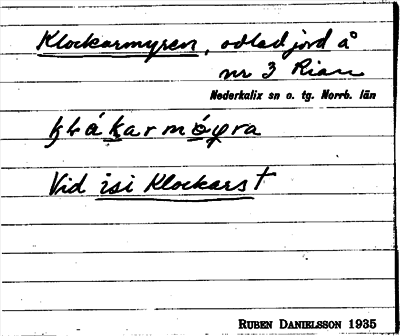 Klockarmyren, odlad jord å
nr 3 Rian
Nederkalix sn o. tg. Norrb. län
Vid isi Klockarst
RUBEN DANIELSSON 1935